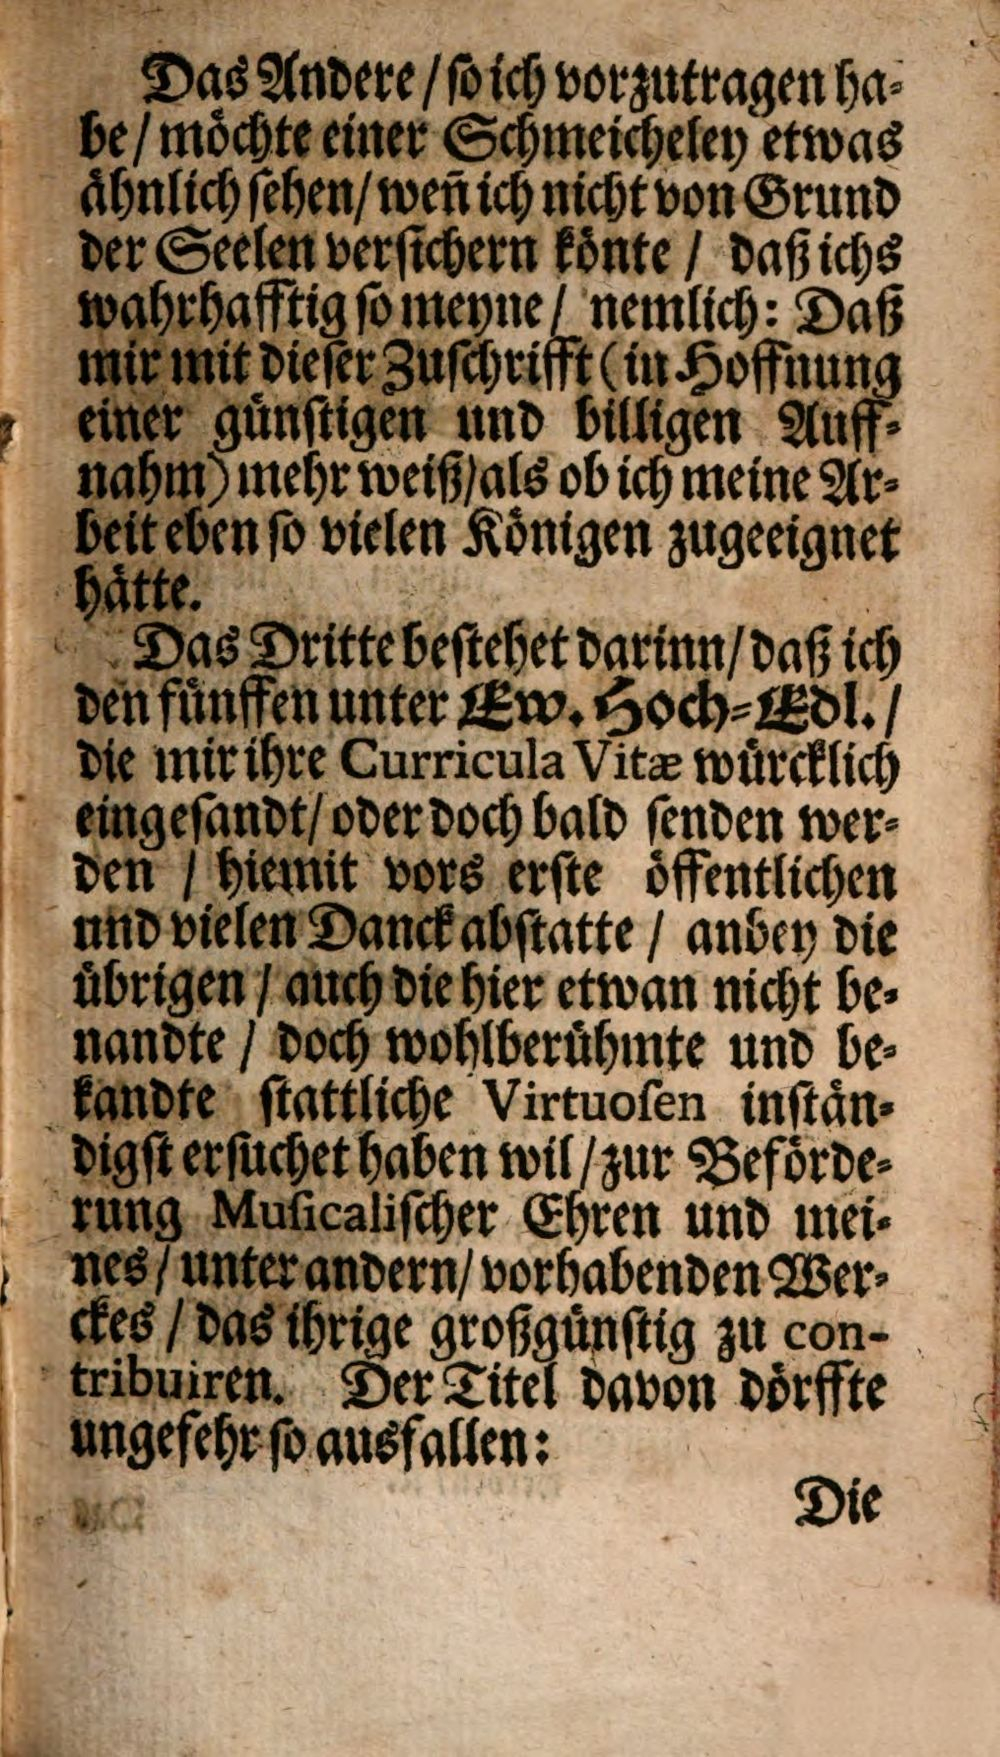 Das Andere / so ich vorzutragen ha-
be / möchte einer Schmeicheley etwas
ähnlich sehen / weñ ich nicht von Grund
der Seelen versichern könte / daß ichs
wahrhafftig so meyne / nemlich: Daß
mir mit dieser Zuschrifft (in Hoffnung
einer günstigen und billigen Auff-
nahm) mehr weiß / als ob ich meine Ar-
beit eben so vielen Königen zugeeignet
hätte.
Das Dritte bestehet darinn / daß ich
den fünffen unter Ew. Hoch-Edl. /
die mir ihre Curricula Vitæ würcklich
eingesandt / oder doch bald senden wer-
den / hiemit vors erste öffentlichen
und vielen Danck abstatte / anbey die
übrigen / auch die hier etwan nicht be-
nandte / doch wohlberühmte und be-
kandte stattliche Virtuosen instän-
digst ersuchet haben wil / zur Beförde-
rung Musicalischer Ehren und mei-
nes / unter andern / vorhabenden Wer-
ckes / das ihrige großgünstig zu con-
tribuiren. Der Titel davon dörffte
ungefehr so ausfallen:
Die